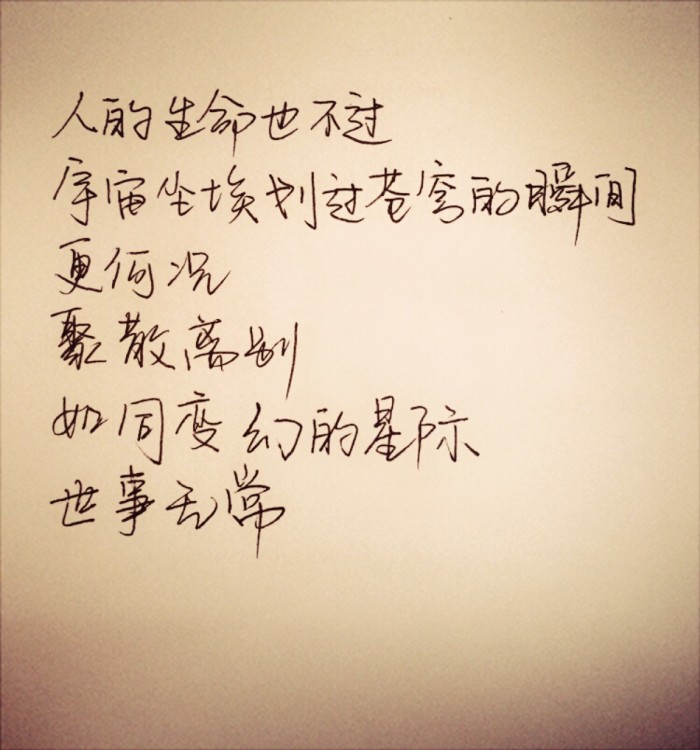 人的生命也不过
宇宙尘埃划过苍穹的瞬间
更何况
聚散离别
如同变幻的星际
世事无常